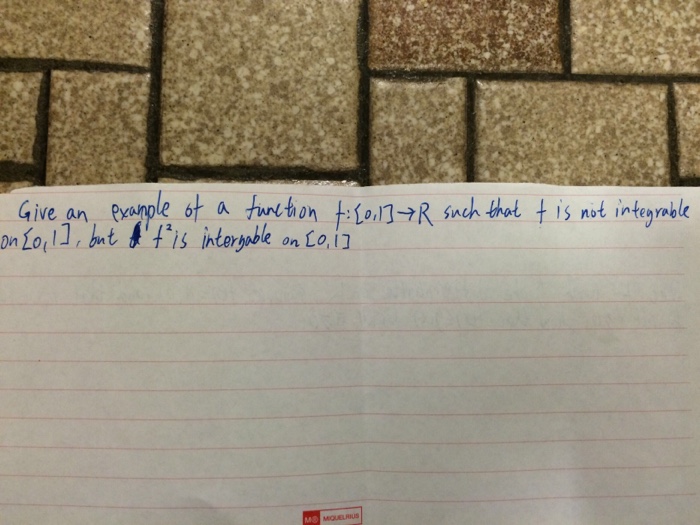 Give an example of a function f:[0,1]→R such that f is not integrable
on [0,1], but f² is intergable on [0,1]
MIQUELRIUS